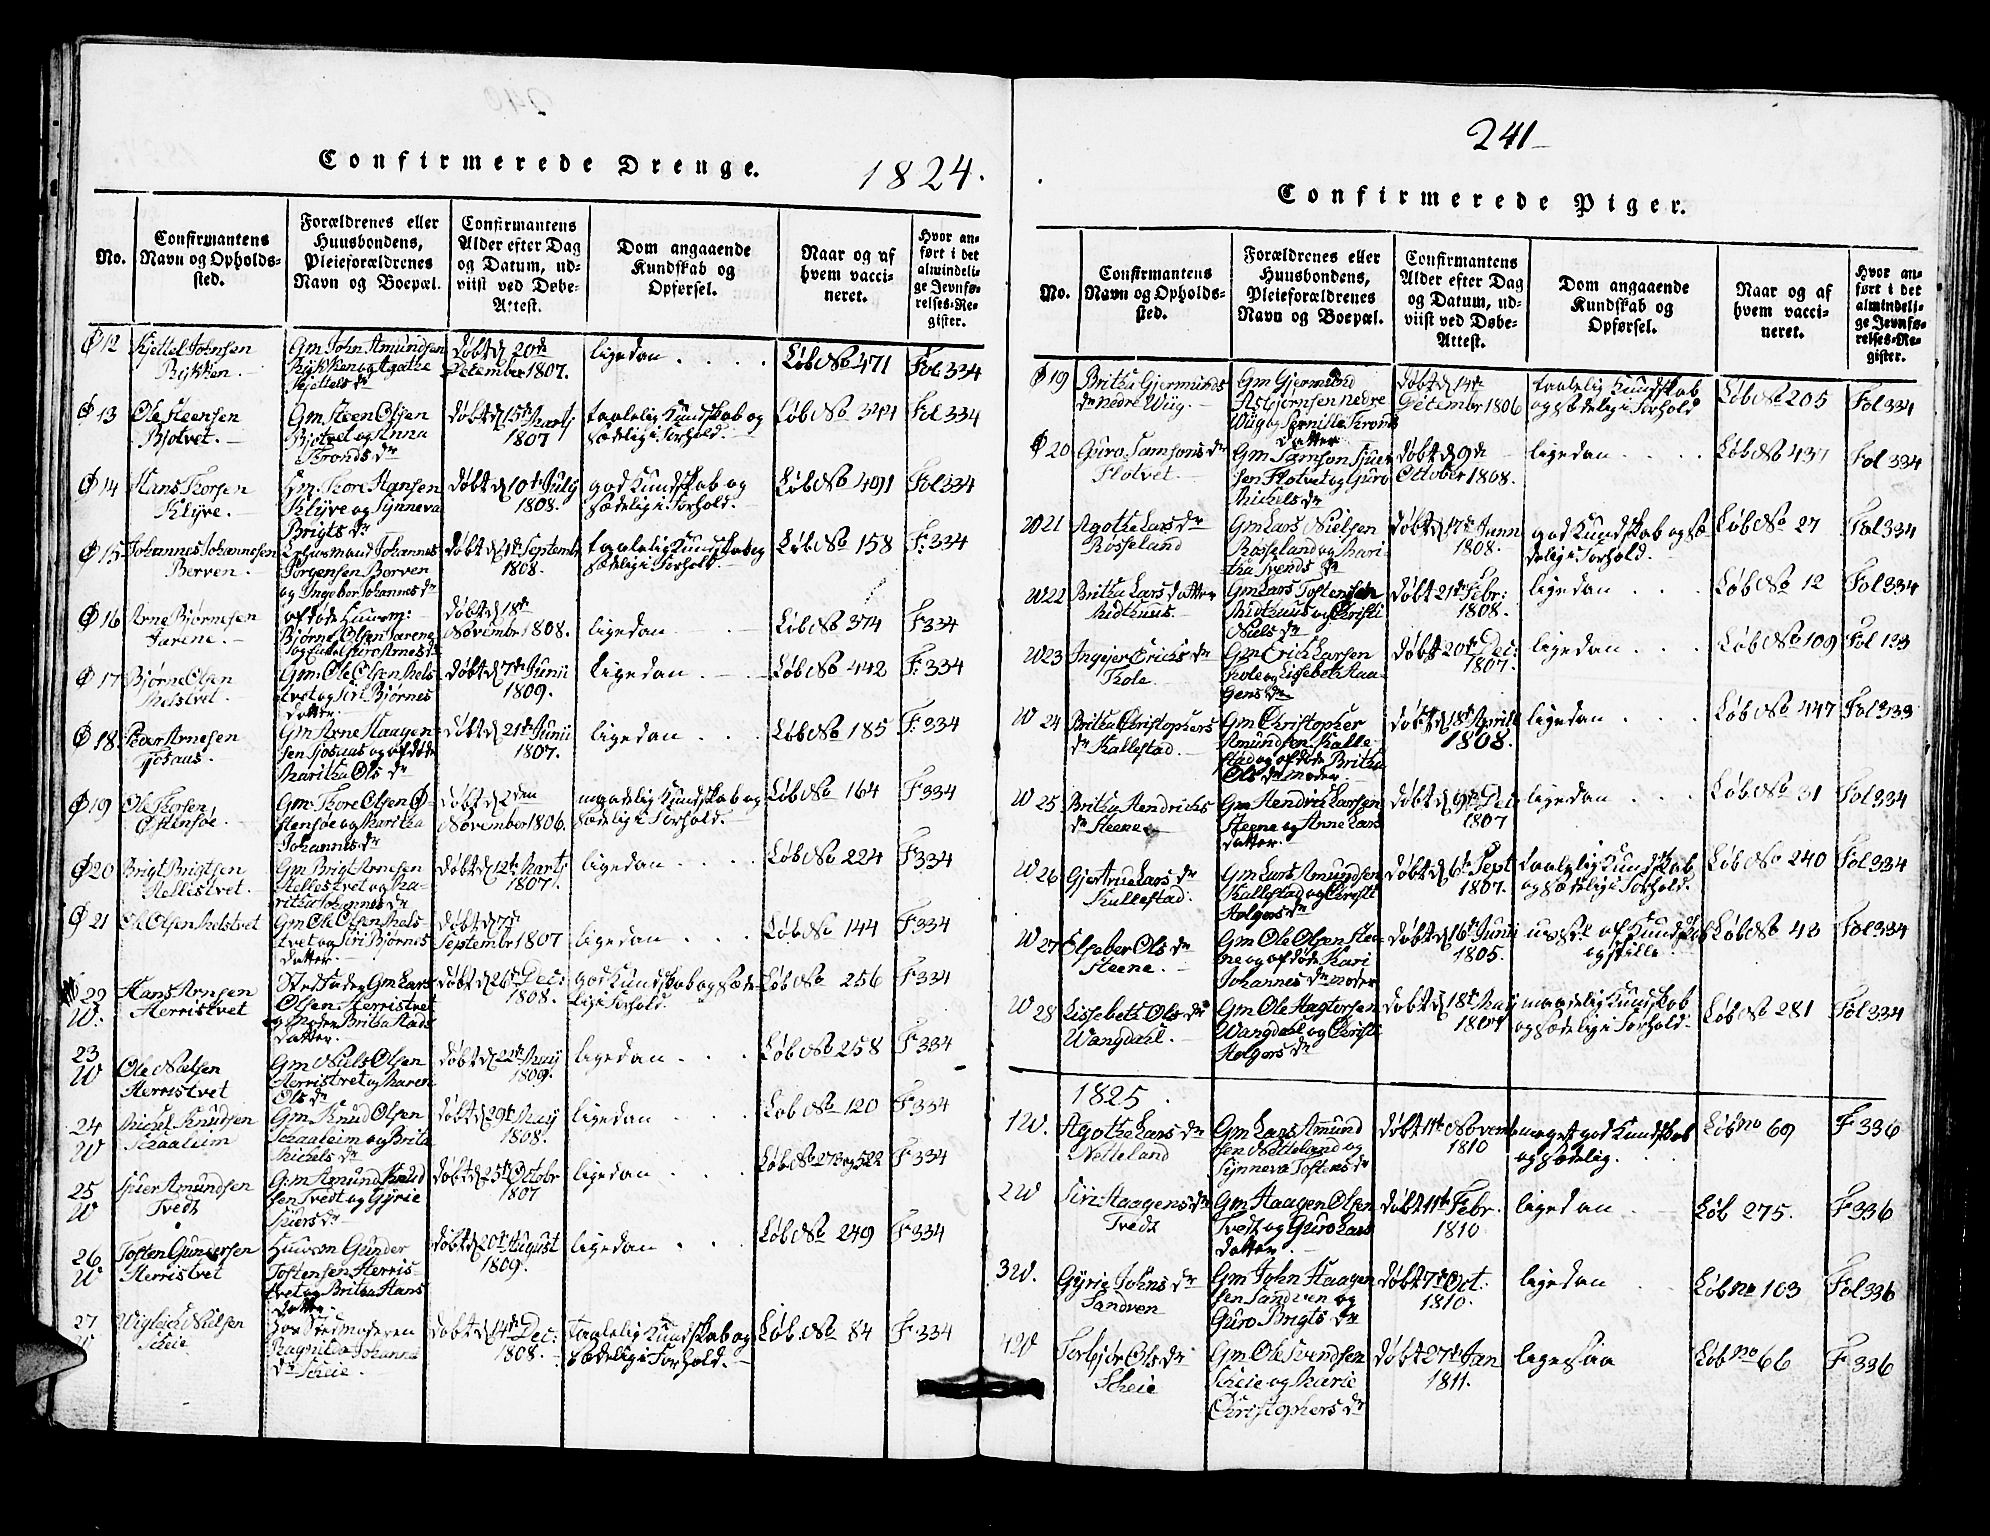 Confirmerede Drenge. 1824.
No.
Confirmantens
Navn og Opholds-
sted.
Forældrenes eller
Huusbondens,
Pleieforældrenes
Navn og Boepæl.
Confirmantens
Alder efter Dag
og Datum, ud-
viist ved Døbe-
Attest.
Dom angaaende
Kundskab og
Opførsel.
Naar og af
hvem vacci-
neret.
Hvor an-
ført i det
almindeli-
ge Jevnfø-
relses-Re-
gister.
Ø 12 Kjettel Johnsen
Rykken.
Gm John Amundsen
Rykken og Agathe
Kjettels dr
døbt d. 20de
December 1807.
ligedan
Løb No 471
Fol 334
Ø 13 Ole Steensen
Bjotvet.
Gm Steen Olsen
Bjotvet og Anna
Tronds dr
døbt d. 15de Martj
1807
taalelig Kundskab og
sædelig i Forhold.
Løb No
Fol 334
Ø 14 Hans Thorsen
Klyve.
Gm Thore Hansen
Klyve og Synneva
Brigts dr
døbt d. 10de July
1808.
god Kundskab og
sædelig i Forhold.
Løb No 491
Fol 334
Ø 15 Johannes Johannesen
Berven.
Johannes
Jørgensen Berven
og Ingebor Johannes dr
døbt d. Septembr
1808.
taalelig Kundskab og
sædelig i Forhold.
Løb No 158
F. 334
Ø 16 Arne Bjørnsen
Jarene.
afdøde Huusm:
Bjørne Olsen Jarene
døbt d. 18de
November 1808.
ligedan
Løb No 374
F 334
Ø 17 Bjørn Olsen
Melstvet.
Gm Ole Olsen Mels
tvet og Siri Bjørnes
datter
døbt d. 7de Junii
1809.
ligedan
Løb No 442
F. 334
Ø 18 Peder Arnesen
Gm Arne Haagen
sen og afdøde
Maritha Ols dr
døbt d. 21de Junii
1807.
ligedan
Løb No 185
F. 334
Ø 19 Ole Thorsen
Østensøe.
Gm Thore Olsen Ø-
stensøe og Maritha
Johannes dr
døbt d. 2den
November 1806.
maadelig Kundskab og
sædelig i Forhold.
Løb No 164
F 334
Ø 20 Brigt Brigtsen
Hellestvet.
Gm Brigt Arnesen
Hellestvet og Ma-
ritha Johannes dr
døbt d. 12te Martj
1807.
ligedan
Løb No 224
F 334
Ø 21 Ole Olsen Melstvet
Gm Ole Olsen Mels
tvet og Siri Bjørnes
datter
døbt d. 7de
Septembr 1807
ligedan
Løb No 144
F 334
22
W. Hans Arnsen
Herristvet
Stedfader Gm Lars
Olsen Herristvet
og Moder Britha Mads
datter
døbt d. 26de Dec:
1808.
god Kundskab og sæde-
lig i Forhold.
Løb No 256
F 334
23
W Ole Nielsen
Herristvet
Gm Niels Olsen
Herristvet og Maren
Ols dr
døbt d. May
1809.
ligedan
Løb No 258
F 334
24
W Michel Knudsen
Skaaleim
Gm Knud Olsen
Skaaleim og Brita
Michels dr
døbt d. 29de May
1808.
ligedan
Løb No 120
F 334
25
W Siver Amundsen
Tvedt
Gm Amund Knud
sen Tvedt og Gyrie
Sivers dr
døbt d. 25de Octobr
1807
ligedan
Løb No 273 og 522
F 334
26
W Tosten Gundersen
Herristvet
Huusm Gunder
Tostensen Herris-
tvet og Britha Hans
datter
døbt d. 20de August
1809.
ligedan
Løb No 249
F 334
27
W Wigleich Nielsen
Scheie
hos Stedmoderen
Ragnilda Johannes
dr Scheie.
døbt d. 14de Dec:
1808.
taalelig Kundskab og
sædelig i Forhold.
Løb No 84
F. 334
241
Confirmerede Piger.
No.
Confirmantens
Navn og Opholds-
sted.
Forældrenes eller
Huusbondens,
Pleieforældrenes
Navn og Boepæl.
Confirmantens
Alder efter Dag
og Datum, ud-
viist ved Døbe-
Attest.
Dom angaaende
Kundskab og
Opførsel.
Naar og af
hvem vacci-
neret.
Hvor an-
ført i det
almindeli-
ge Jevnfø-
relses-Re-
gister.
Ø 19 Britha Gjermunds
dr nedre Wiig.
Gm Gjermund
Asbjørnsen nedre
Wiig og Pernille Tronds
datter
døbt d. 14de
December 1806
taalelig Kundskab
og sædelig i Forhold
Løb No 205
Fol 334
Ø 20 Guro Samsons dr
Flotvet.
Gm Samson Siver
sen Flotvet og Guro
Michels dr
døbt d. 9de
October 1808.
ligedan
Løb No 437
Fol 334
W 21 Agotha Lars dr
Røsseland
Gm Lars Nielsen
Røsseland og Mari-
tha Svends dr
døbt d. 17de Junii
1808.
god Kundskab og sæ-
delig i Forhold.
Løb No 27
Fol 334
W 22 Britha Lars datter
Midthuus.
Gm Lars Tostensen
Midthuus og Christi
Niels dr
døbt 21de Febr:
1808.
ligedan
Løb No 12
Fol 334
W 23 Ingejer Erichs dr
Thole.
Gm Erich Larsen
Thole og Lissebeth Haa-
gens dr
døbt 20de Dec:
1807.
ligedan
Løb No 109
Fol 133
W 24 Britha Christophers
dr Kallestad.
Gm Christopher
Amundsen Kalle
stad og afdøde Britha
Ols dr moder.
døbt d. 18de Aprill
1808.
ligedan
Løb No 447
Fol 333
W 25 Britha Hendrichs
dr Steene
Gm Hendrich Larsen
Steene og Anne Lars
datter.
døbt d. 9de Dec
1807
ligedan
Løb No 31
Fol 334
W. 26 Gjertrue Lars dr
Kallestad.
Gm Lars Amundsen
Kallestad og Christi
Holgers dr
døbt d. 6te Sept
1807.
taalelig Kundskab
og sædelig i Forhold.
Løb No 240
Fol 334
W 27 Elseber Ols dr
Steene.
Gm Ole Olsen Stee-
ne og afdøde Kari
Johannes dr moder
døbt d. 16de Junii
1805.
af Kundskab
og stille
Løb No 43
Fol 334
W 28 Lissebeth Ols dr
Wangdahl.
Gm Ole Hagtorsen
Wangdahl og Christi
Holgers dr
døbt d. 18de May
1807
maadelig Kundskab
og sædelig i Forhold.
Løb No 281
Fol 334
1825.
1 W. Agotha Lars dr
Netteland
Gm Lars Amund
sen Netteland og
Synneva Tostens dr
døbt 11te Novemb
1810
meget god Kundskab
og sædelig.
Løb no 69
F 336
2 W Siri Haagens dr
Tvedt
Gm Haagen Olsen
Tvedt og Guro Lars
datter.
døbt 11te Febr.
1810
ligedan
Løb 275.
F 336
3 W. Gyrie Johns dr
Sandven
Gm John Haagen
sen Sandven og
Guro Brigts dr
døbt 7de Oct:
1810.
ligedan
Løb no 103
Fol 336
4 W Torbjør Ols dr
Scheie
Gm Ole Svendsen
Scheie og Marie
Christophers dr
døbt 27de Jan
1811.
ligesaa
Løb no 66
F 336